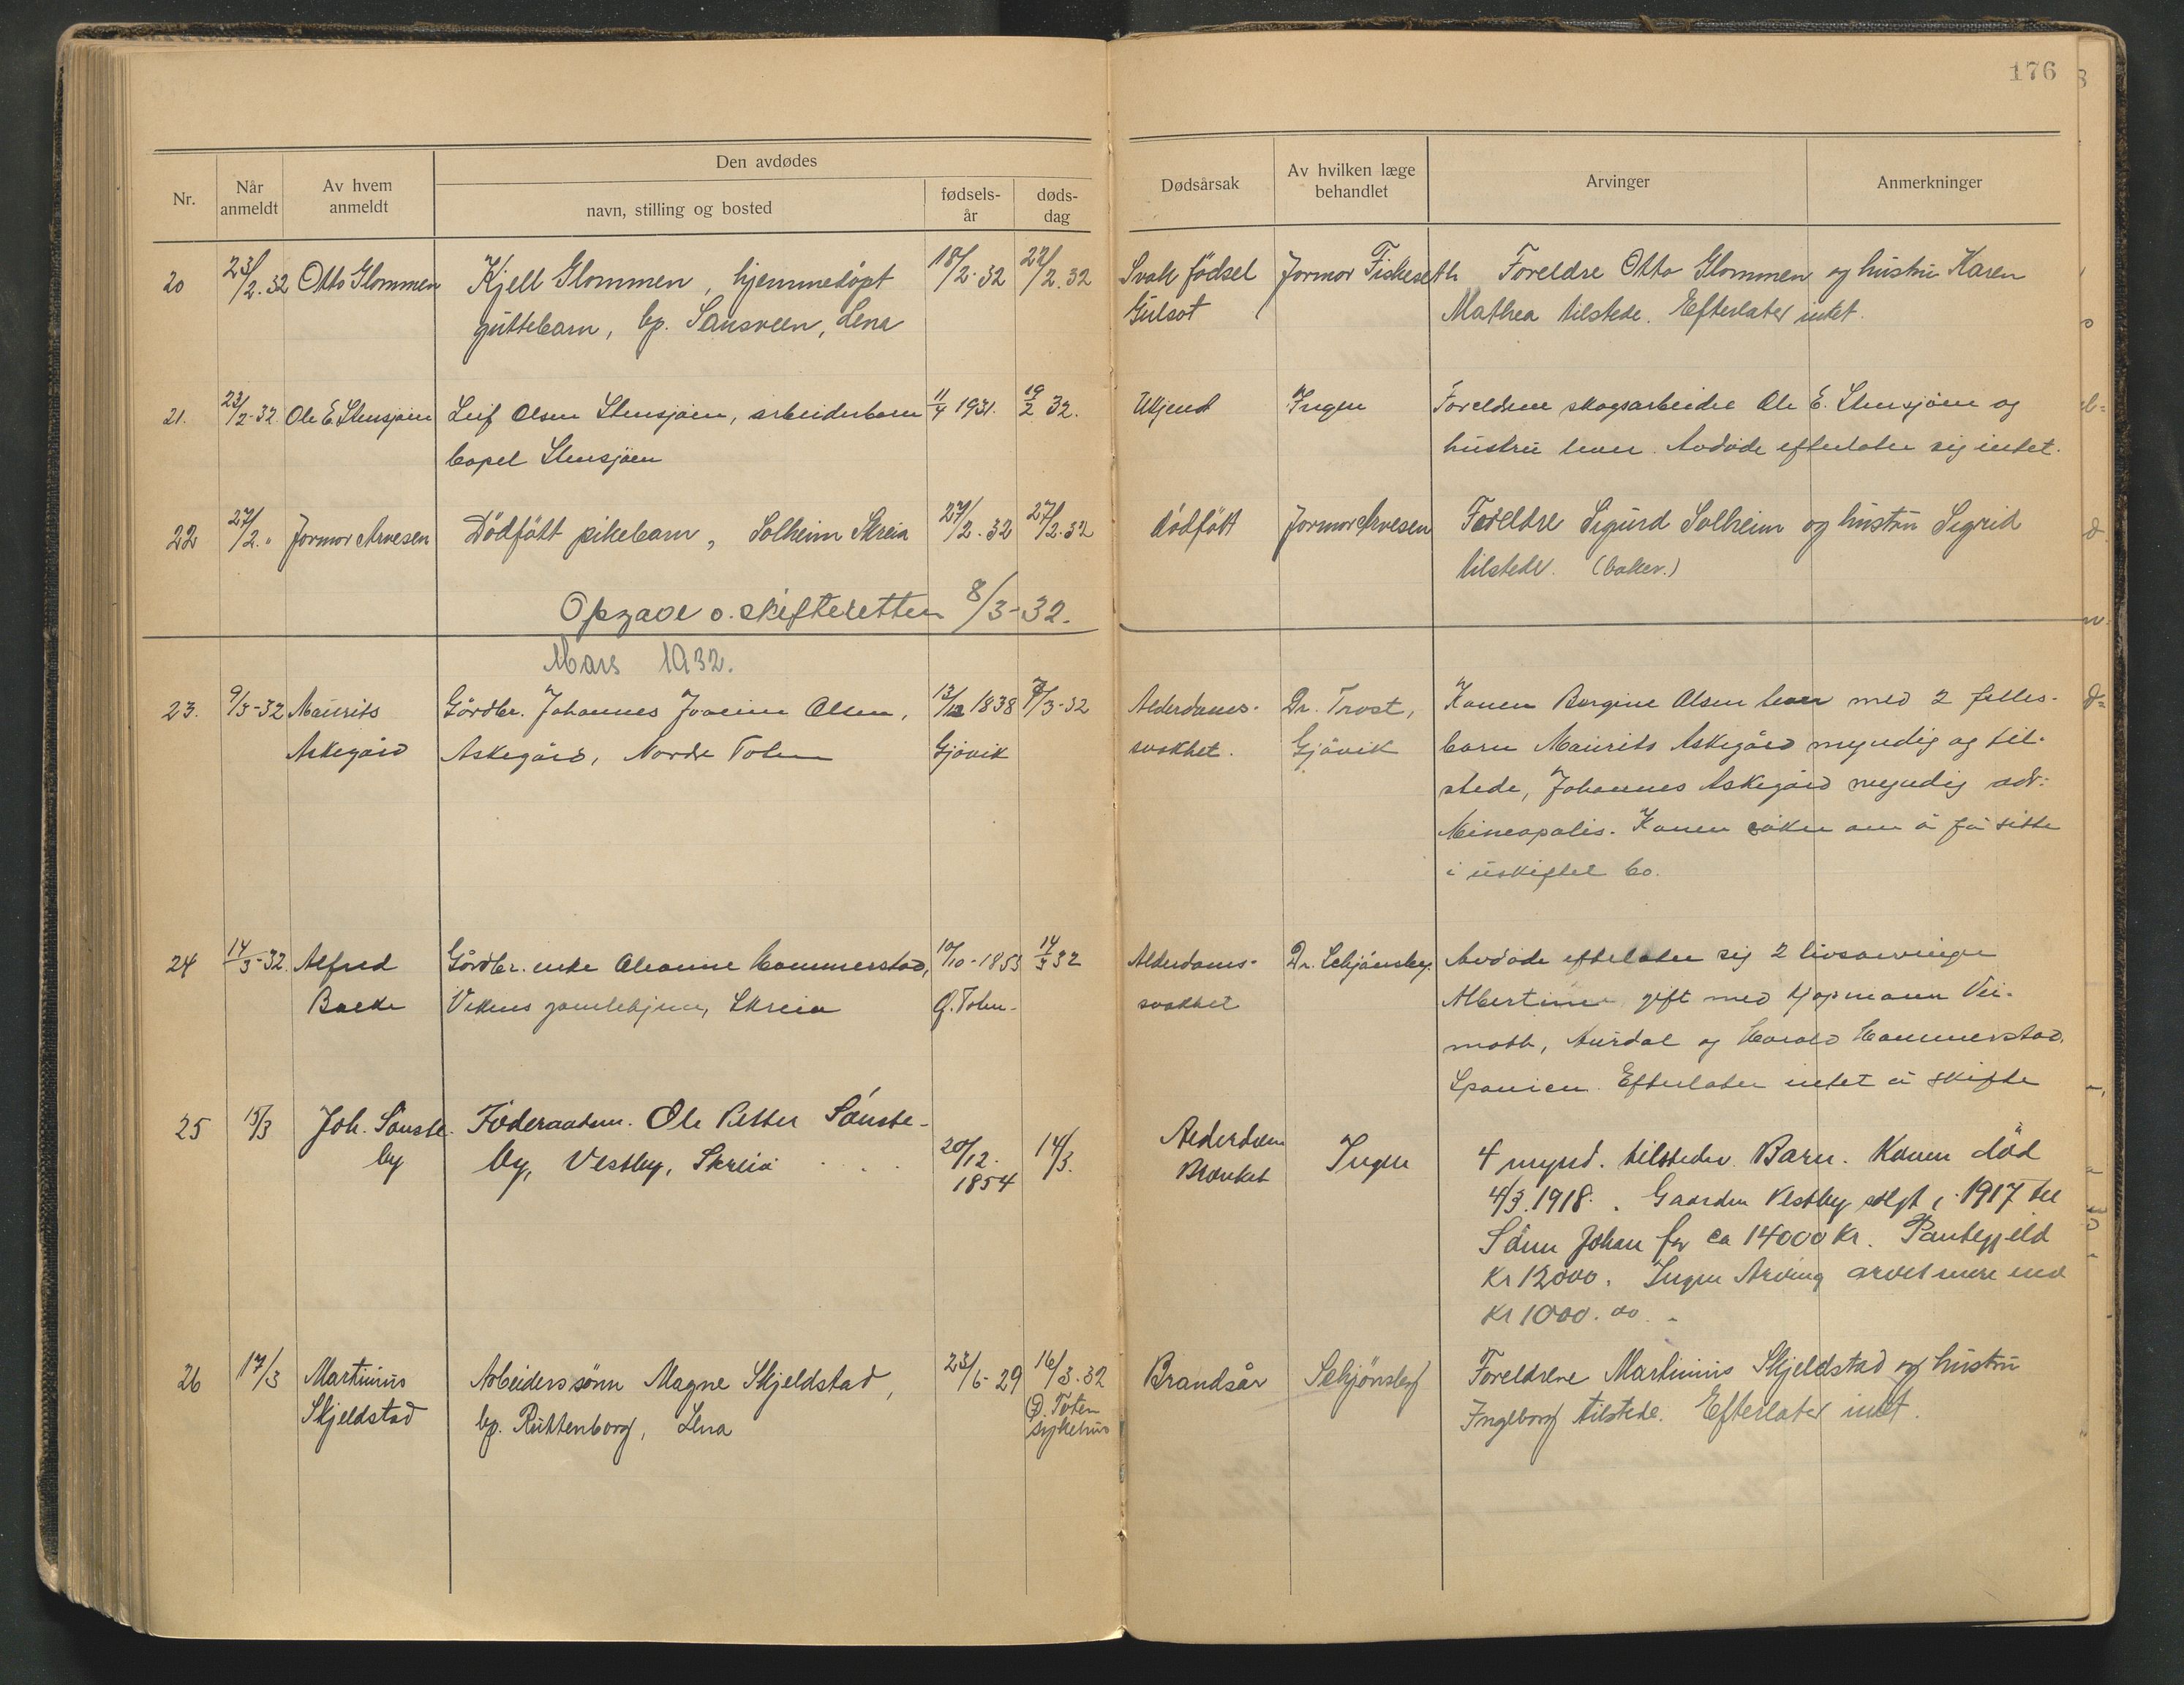 176
Nr.
Når anmeldt
Av hvem anmeldt
Den avdødes
navn, stilling og bosted
fødsels-år
døds-dag
Dødsårsak
Av hvilken læge behandlet
Arvinger
Anmerkninger
20 23/2.32 Otto Glommen Kjell Glommen, hjemmedøpt 18/2-32 22/2.32 Svak födsel Jormor Fiskeseth Foreldre Otto Glommen og hustru Karen
guttebarn, bp. Sansveen, Lena Gulsot Mathea tilstede. Efterlater intet.
21. 23/2-32 Ole E. Stensjøen Leif Olsen Stensjøen, arbeiderbarn 11/4 1931. 19/2 32. Ukjent Ingen Foreldrene skogsarbeider Ole E. Stensjøen og
bopel Stensjøen hustru lever. Avdøde efterlater sig intet.
22 27/2 " Jormor Arnesen Dödfödt pikebarn, Solheim Skreia 27/2.32 27/2.32 dödfödt Jormor Arnesen Foreldre Sigurd Solheim og hustru Sigrid
tilstede. (baker.)
Opgave o. skifteretten 8/3-32.
Mars 1932.
23. 9/3-32 Maurits Gårdbr. Johannes Olsen, 13/12 1838 7/3-32 Alderdoms- Dr. Trost, Konen Bergine Olsen lever med 2 felles-
Askegård Askegård, Nordre Toten Gjøvik svakhet. Gjøvik barn Maurits Askegård myndig og til-
stede, Johannes Askegård myndig adr.
Mineapolis. Konen søker om å få sitte
i uskiftet bo.
24 14/3-32. Alfred Gårdbr. enke Oleanne Hammerstad, 10/10-1853 14/3 32 Alderdoms- Dr. Schjønsby. Avdøde efterlater sig 2 livsarvinger
Bakke Vikens gamlehjem, Skreia Ø. Toten. svakhet Albertine gift med kjøpmann Vei-
moth, Aurdal og Harald Hammerstad,
Spanien. Efterlater intet å skifte
25 15/3 Joh. Sønste- Føderaadsm. Ole Petter Sönste- 20/12. 1854 14/3. Alderdom Ingen 4 mynd. tilsteder. Barn. Konen död
by by, Vestby, Skreia 4/3.1918. Gaarden Vestby solgt i 1917 til
Sönn Johan for ca 14000 Kr. Pantegjeld
Kr 12000. Ingen Arving arvet mere end
Kr 1000.00.
26 17/3 Martinius Arbeiderssönn Magne Skjeldstad, 23/6-29 16/3.32 Brandsår Schjönsby Foreldrene Martinius Skjeldstad og hustru
Skjeldstad bp. Ruttenborg, Lena Ø. Toten sykehus Ingeborg tilstede. Efterlater intet.